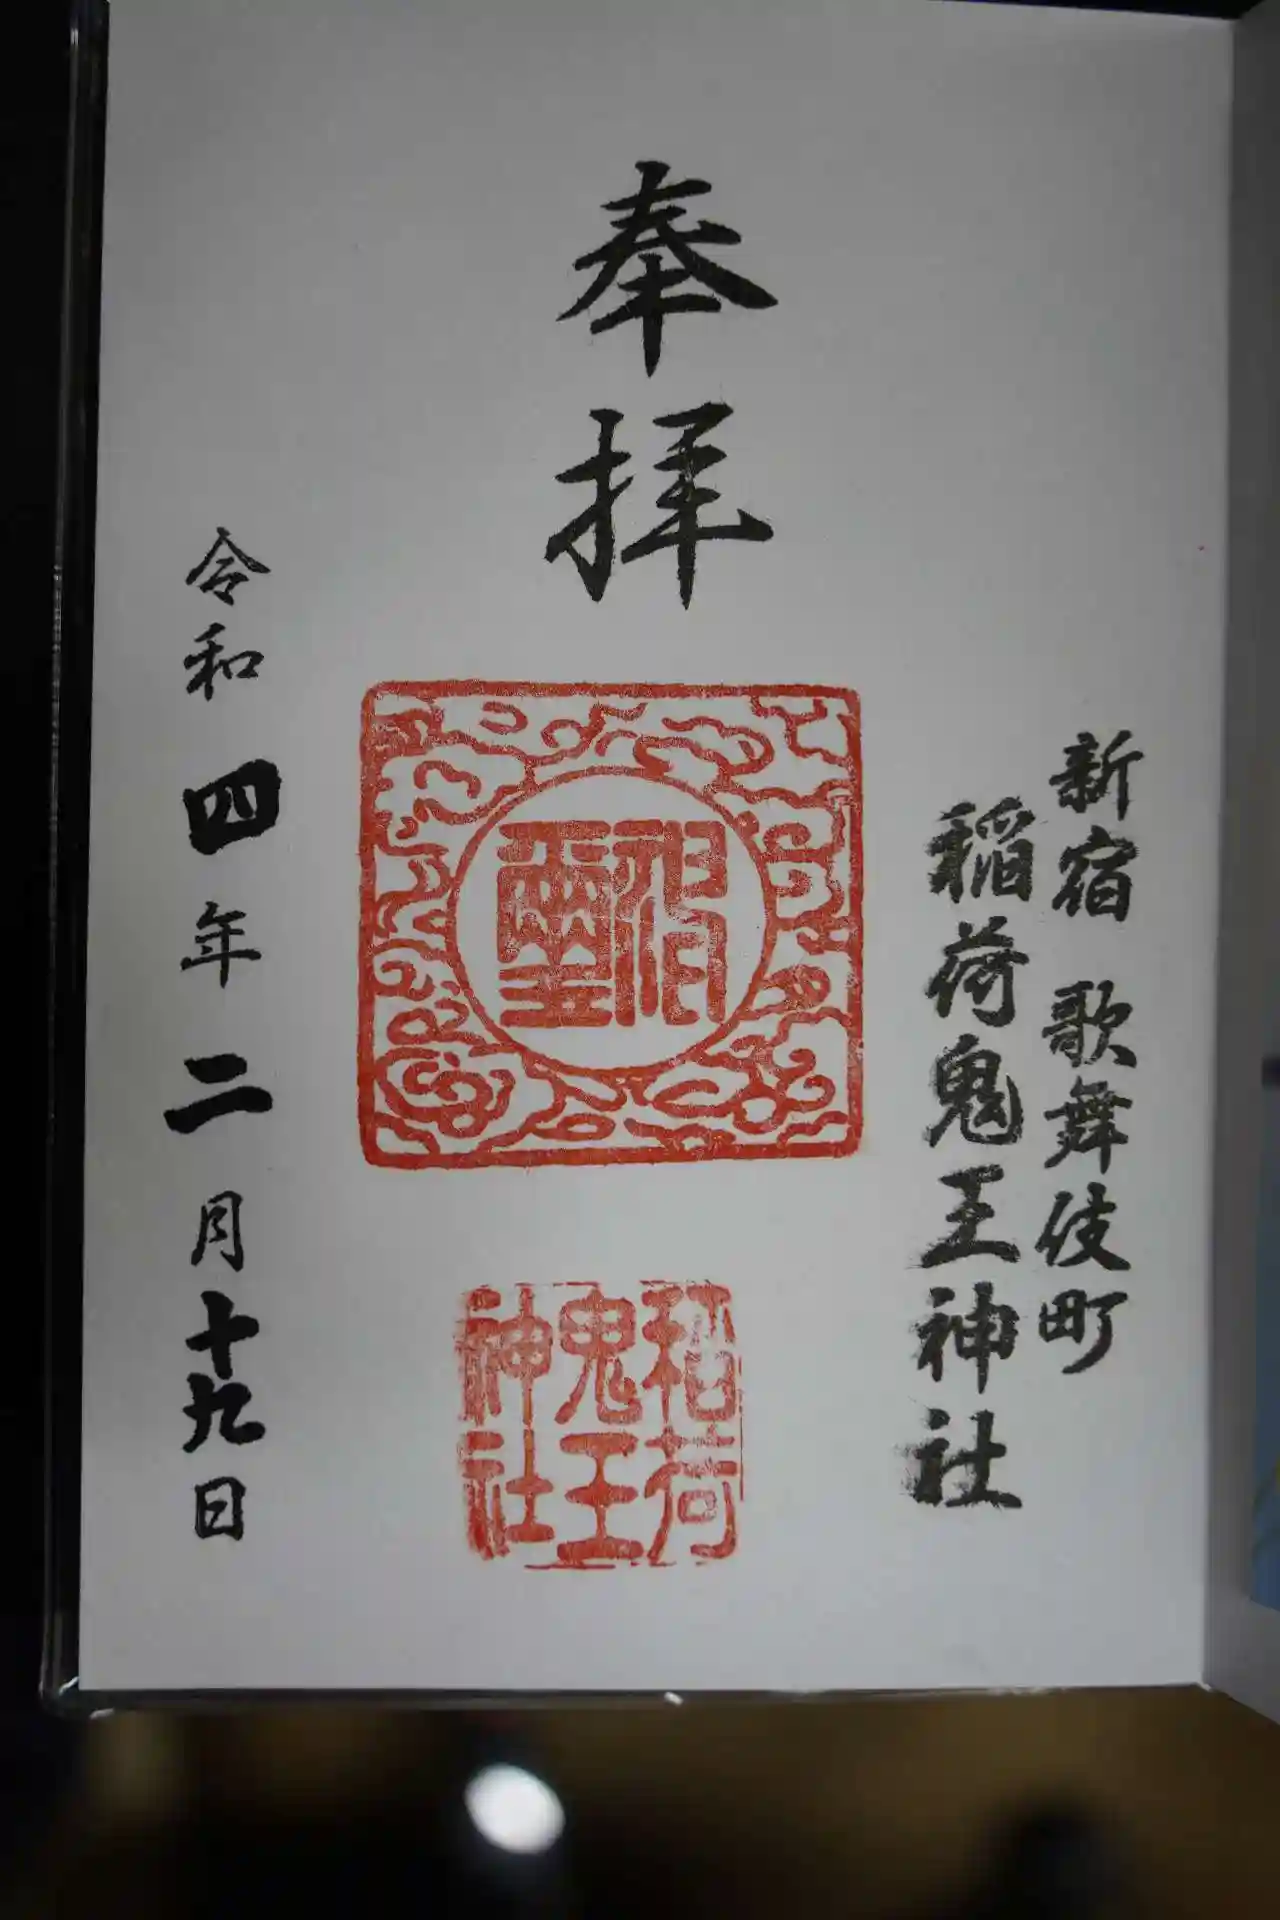 奉拝
新宿 歌舞伎町
稲荷鬼王神社
稲荷
鬼王
神社
令和四年二月十九日